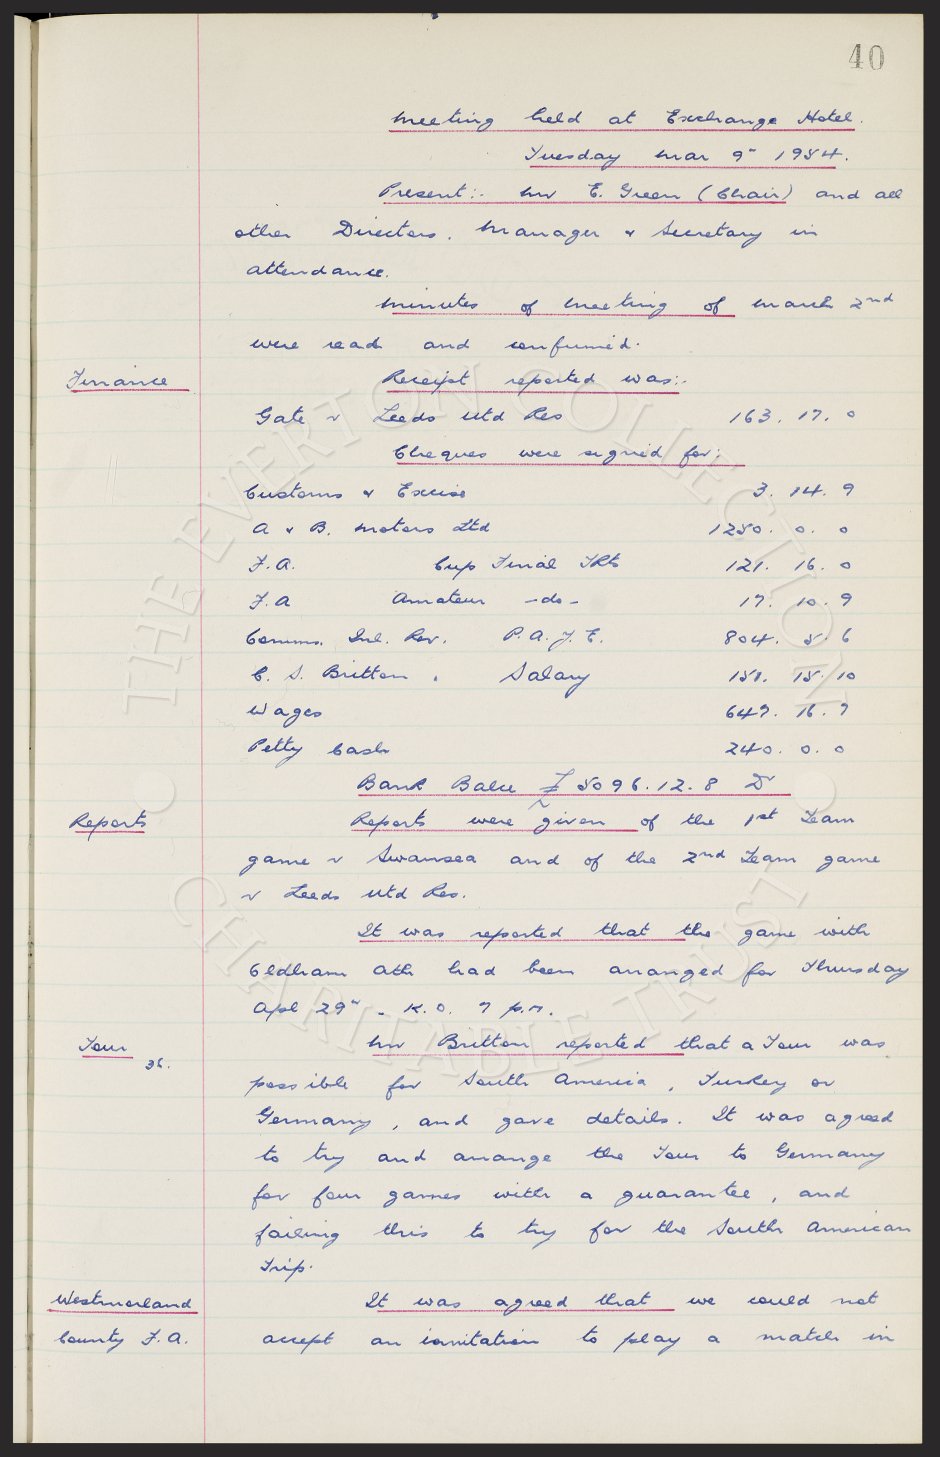 40
Meeting held at Exchange Hotel.
Tuesday Mar 9" 1954.
Present:- Mr E. Green (Chair) and all
other Directors. Manager & Secretary in
attendance.
Minutes of meeting of March 2nd
were read and confirmed.
Finance Receipt reported was:-
Gate v Leeds Utd Res 163. 17. 0
Cheques were signed for:
Customs & Excise 3. 14. 9
A & B. Motors Ltd 1250. 0. 0
F.A. Cup Final Tkts 121. 16. 0
F.A Amateur -do- 17. 10. 9
Comms. Inl. Rev. P.A.Y.E. 804. 5. 6
C. S. Britton. Salary 151. 15. 10
Wages 647. 16. 7
Petty Cash 240. 0. 0
Bank Balce £5096.12.8 Dr
Reports Reports were given of the 1st Team
game v Swansea and of the 2nd Team game
v Leeds Utd Res.
It was reported that the game with
Oldham Ath had been arranged for Thursday
Apl 29". K.O. 7 p.m.
Tour 36. Mr Britton reported that a Tour was
possible for South America, Turkey or
Germany, and gave details. It was agreed
to try and arrange the Tour to Germany
for four games with a guarantee, and
failing this to try for the South American
Trip.
Westmorland It was agreed that we could not
County F.A. accept an invitation to play a match in
THE EVERTON COLLECTION
CHARITABLE TRUST